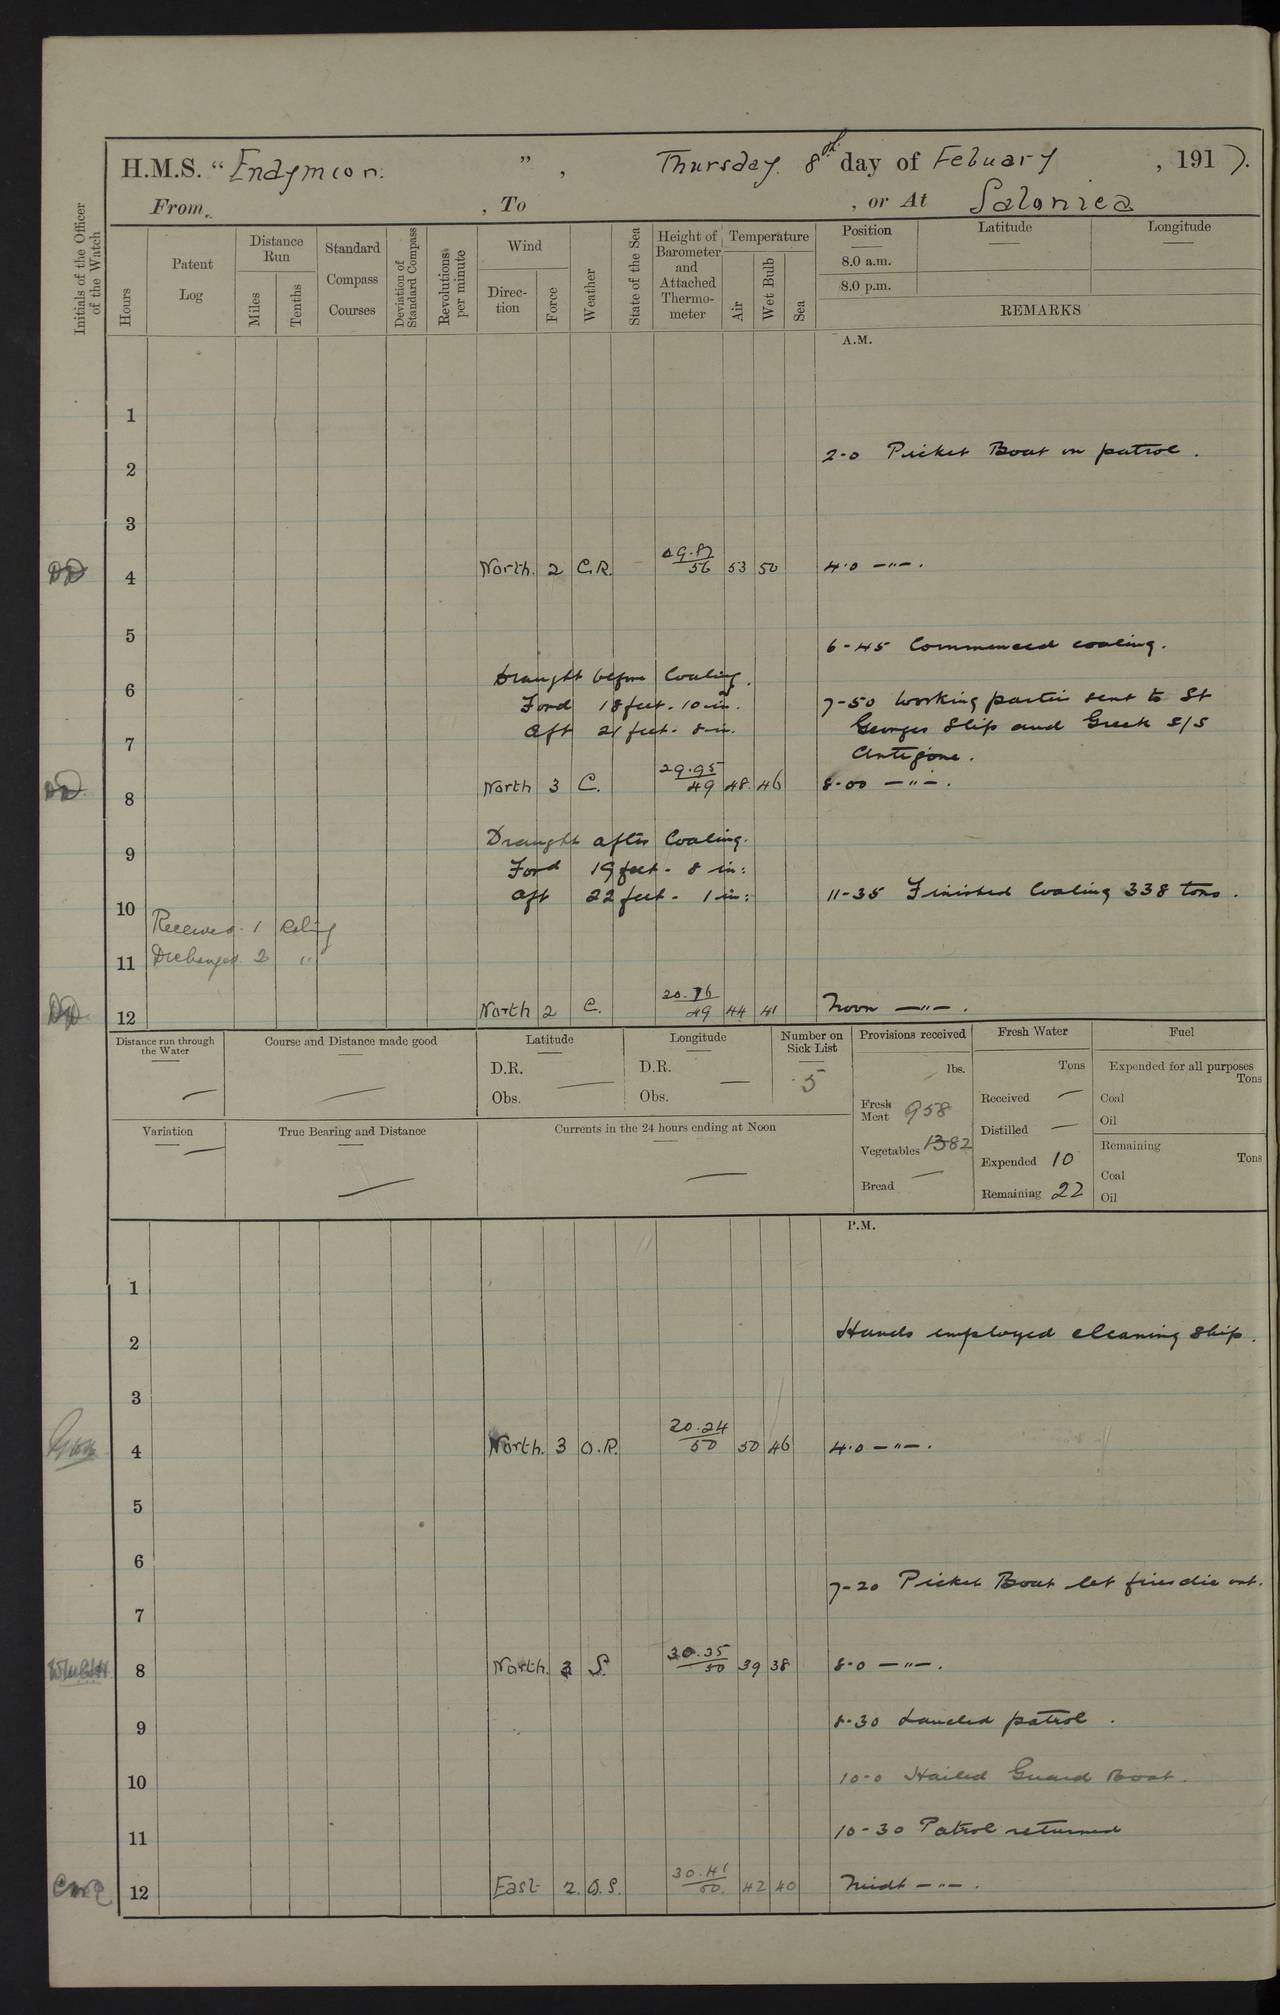 H.M.S. " Endymion. ", Thursday. 8th day of Febuary, 1917.
From , To , or At Salonica
Initials of the Officer of the Watch
Hours
Patent Log
Distance Run
Miles
Tenths
Standard Compass Courses
Deviation of Standard Compass
Revolutions per minute
Wind
Direction
Force
Weather
State of the Sea
Height of Barometer and Attached Thermometer
Temperature
Air
Wet Bulb
Sea
Position
8.0 a.m.
8.0 p.m.
Latitude
Longitude
REMARKS
A.M.
1
2-0 Picket Boat on patrol.
2
3
DD 4 North. 2 C.R. 56 53 50 4.0 —"—.
5
6-45 Commenced coaling.
Draught before Coaling.
6 Ford 18 feet. 10 in. 7-50 Working parties sent to St
Aft 21 feet. 8 in. Georges Ship and Greek S/S
7 Antigone.
DD 8 North 3 C. 29.95 49 48. 46 8-00 —"—.
Draught after Coaling.
9 Ford 19 feet - 8 in:
Aft 22 feet - 1 in: 11-35 Finished Coaling 338 tons.
10 Received. 1 Rating
11 Discharged 2 "
DD 12 North 2 C. 49 44 41 Noon —"—.
Distance run through the Water
—
Course and Distance made good
—
Latitude
D.R.
Obs. —
Longitude
D.R.
Obs. —
Number on Sick List
5
Provisions received
lbs.
Fresh Meat 958
Vegetables 1382
Bread —
Fresh Water
Tons
Received —
Distilled —
Expended 10
Remaining 22
Fuel
Expended for all purposes
Tons
Coal
Oil
Remaining
Tons
Coal
Oil
Variation
—
True Bearing and Distance
—
Currents in the 24 hours ending at Noon
—
P.M.
1
2 Hands employed cleaning ship.
3
4 North. 3 O.R. 20.24 50 50 46 4.0 —"—.
5
6
7-20 Picket Boat let fires die out.
7
8 North. 3 S. 30.35 50 39 38 8-0 —"—.
9 8-30 Landed patrol.
10 10-0 Hailed Guard Boat.
11 10-30 Patrol returned
12 East 2. O.S. 30.41 50. 42 40 Midt —"—.